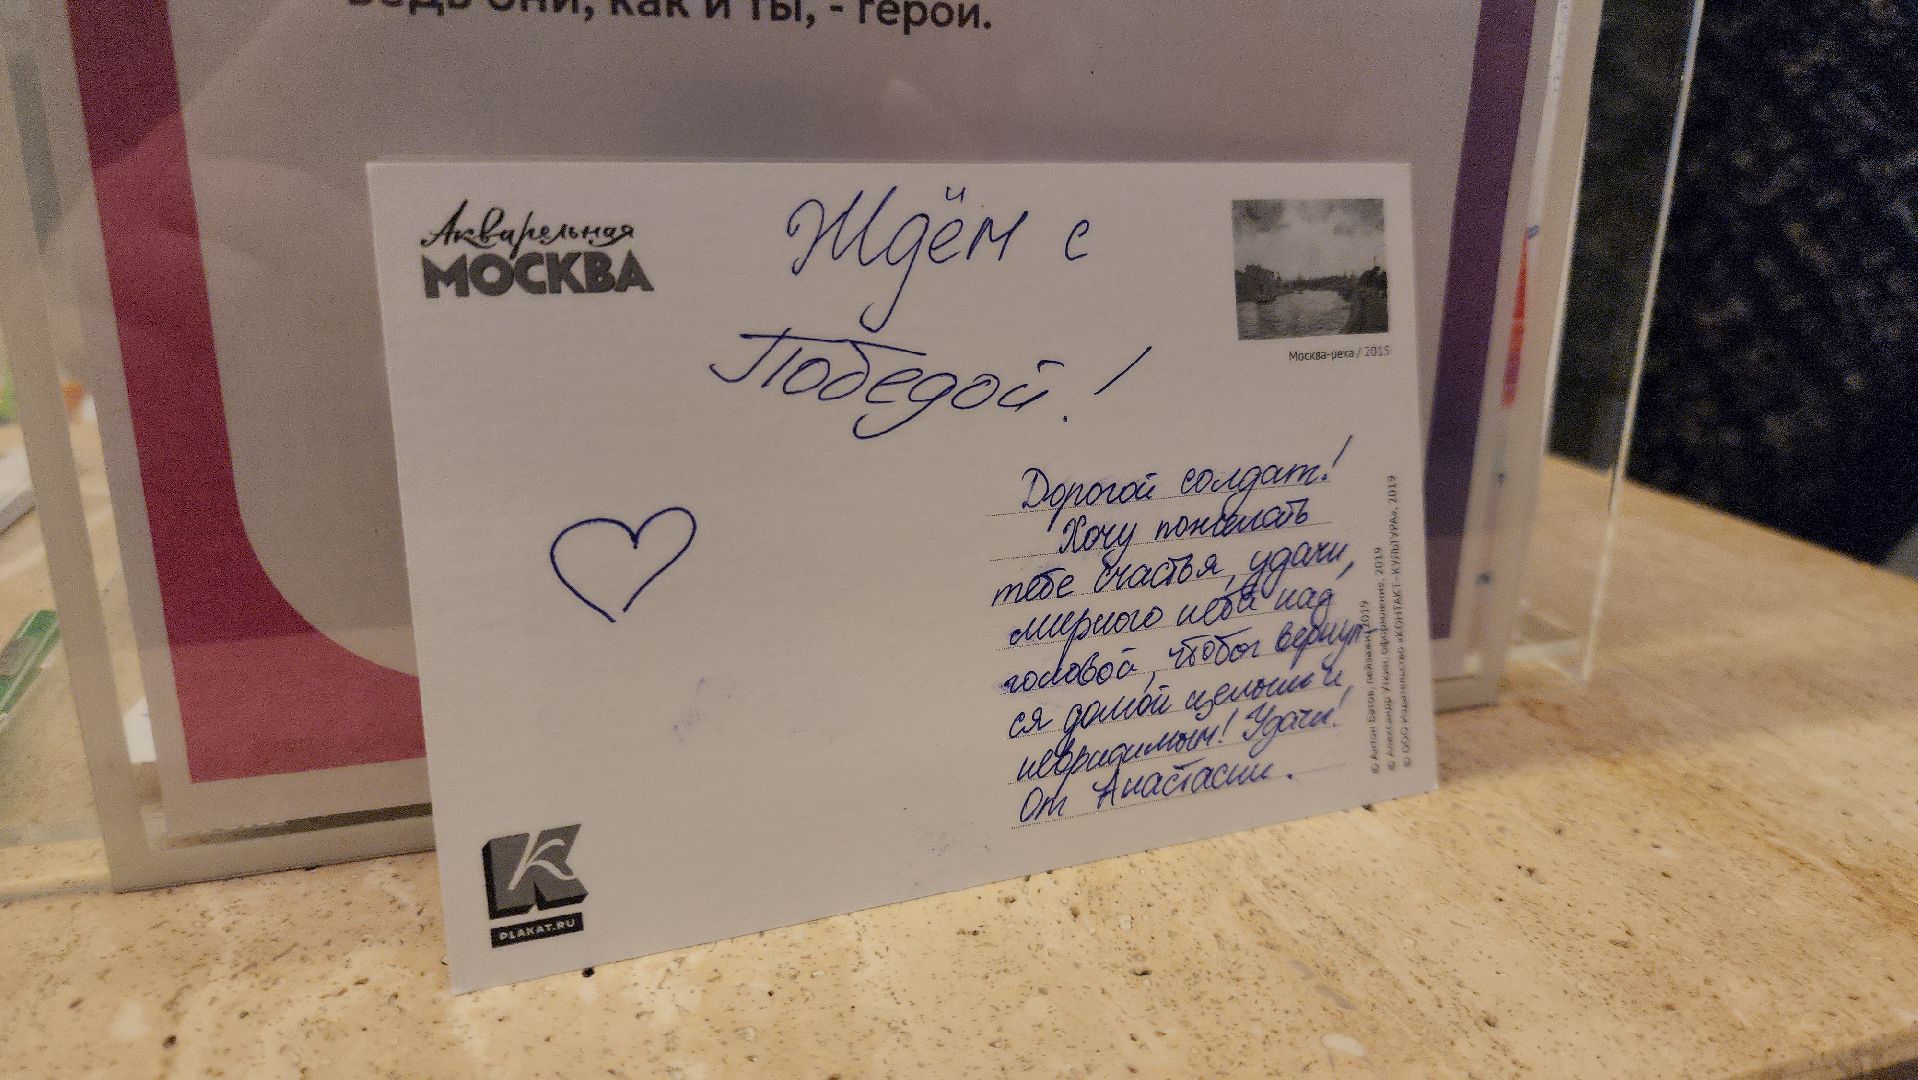 ведь они, как и ты, - герои.
Акварельная
МОСКВА
Ждём с
Победой!
Москва-река / 2015
Дорогой солдат!
Хочу пожелать
тебе счастья, удачи,
мирного неба над
головой, чтобы вернул-
ся домой целым и
невридимым! Удачи!
От Анастасии.
© Антон Батов, пейзажи, 2019
© Александр Уткин, оформление, 2019
© ООО Издательство «КОНТАКТ-КУЛЬТУРА», 2019
К
PLAKAT.RU